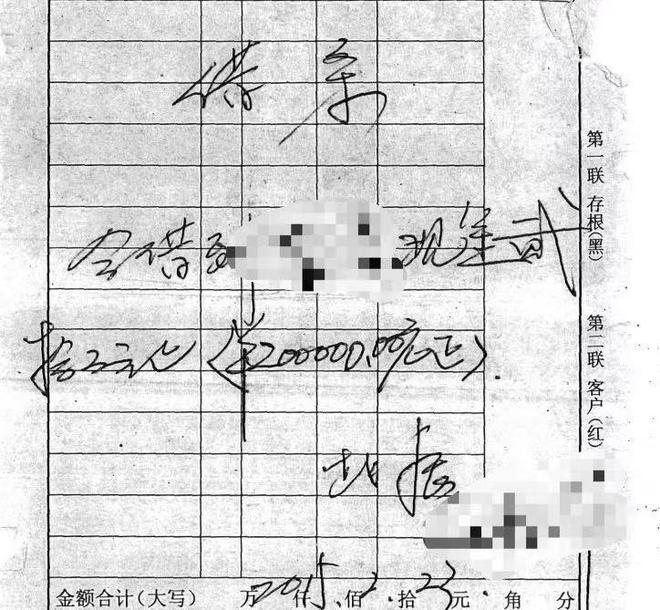 借条
今借到 现金贰
拾万元正（¥200000.00元正）.
此据
2015.2.23.
第一联 存根（黑）
第二联 客户（红）
金额合计（大写） 万 仟 佰 拾 元 角 分